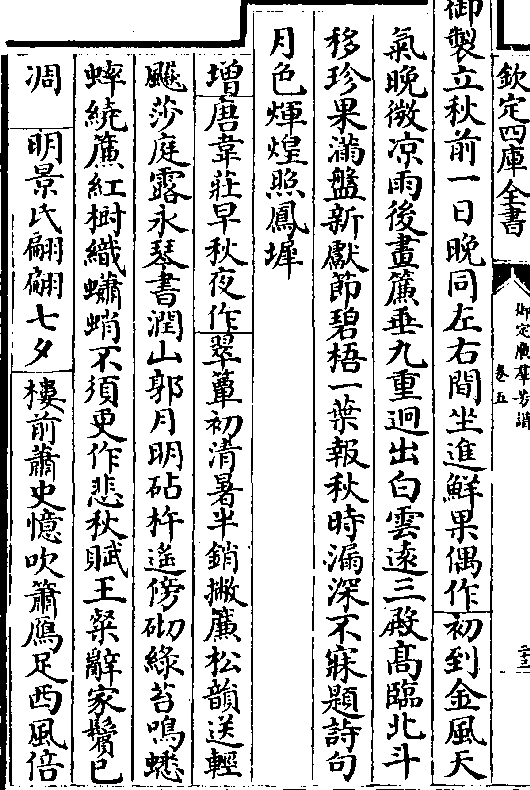 欽定四庫全書
御定廣羣芳譜
卷五
御製立秋前一日晚同左右間坐進鮮果偶作初到金風天
氣晚微凉雨後畫簾垂九重迥出白雲遠三殿髙臨北斗
移珍果滿盤新獻節碧梧一葉報秋時漏深不寐題詩句
月色輝煌照鳳墀
増唐韋莊早秋夜作翠簟初清暑半銷撇簾松韻送輕
飈莎庭露永琴書潤山郭月明砧杵遥傍砌綠苔鳴蟋
蟀繞簷紅樹織蠨蛸不須更作悲秋賦王粲辭家鬢已
凋
明景氏翩翩七夕樓前蕭史憶吹簫鴈足西風倍